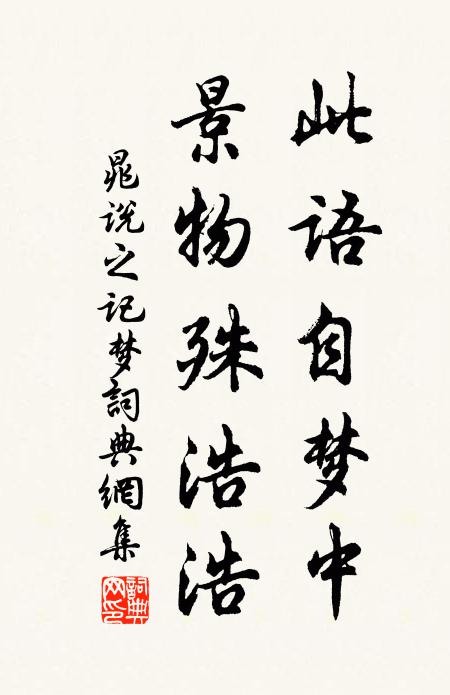 此语自梦中
景物殊浩浩
晁说之记梦詞典網集
詞典网印